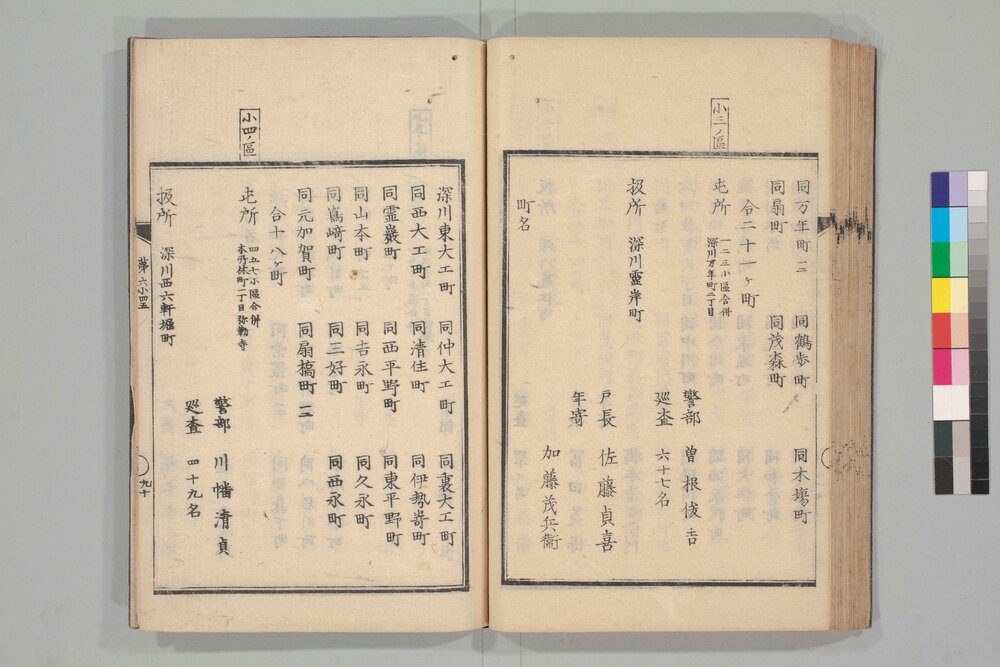 同万年町 一二 同鶴歩町 同木塲町
同扇町 同茂森町
合二十一ヶ町
小三ノ區
屯所 一二三小區合併
深川万年町二丁目
警部 曽根俊吉
巡査 六十七名
扱所 深川靈岸町
戸長 佐藤貞喜
年寄 加藤茂兵衞
町名
深川東大工町 同仲大工町 同裏大工町
同西大工町 同清住町 同伊勢嵜町
同霊巌町 同西平野町 同東平野町
同山本町 同吉永町 同久永町
同嶌﨑町 同三好町 同西永町
同元加賀町 同扇橋町 一二
合十八ヶ町
小四ノ區
屯所 四五七小區合併
本所林町二丁目弥勒寺
警部 川幡清貞
巡査 四十九名
扱所 深川西六軒堀町
第六小四五
九十